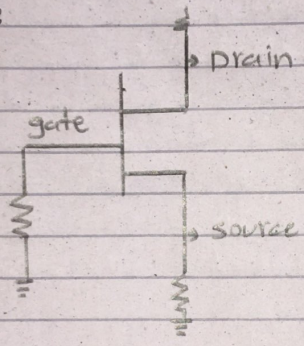 Drain
gate
source